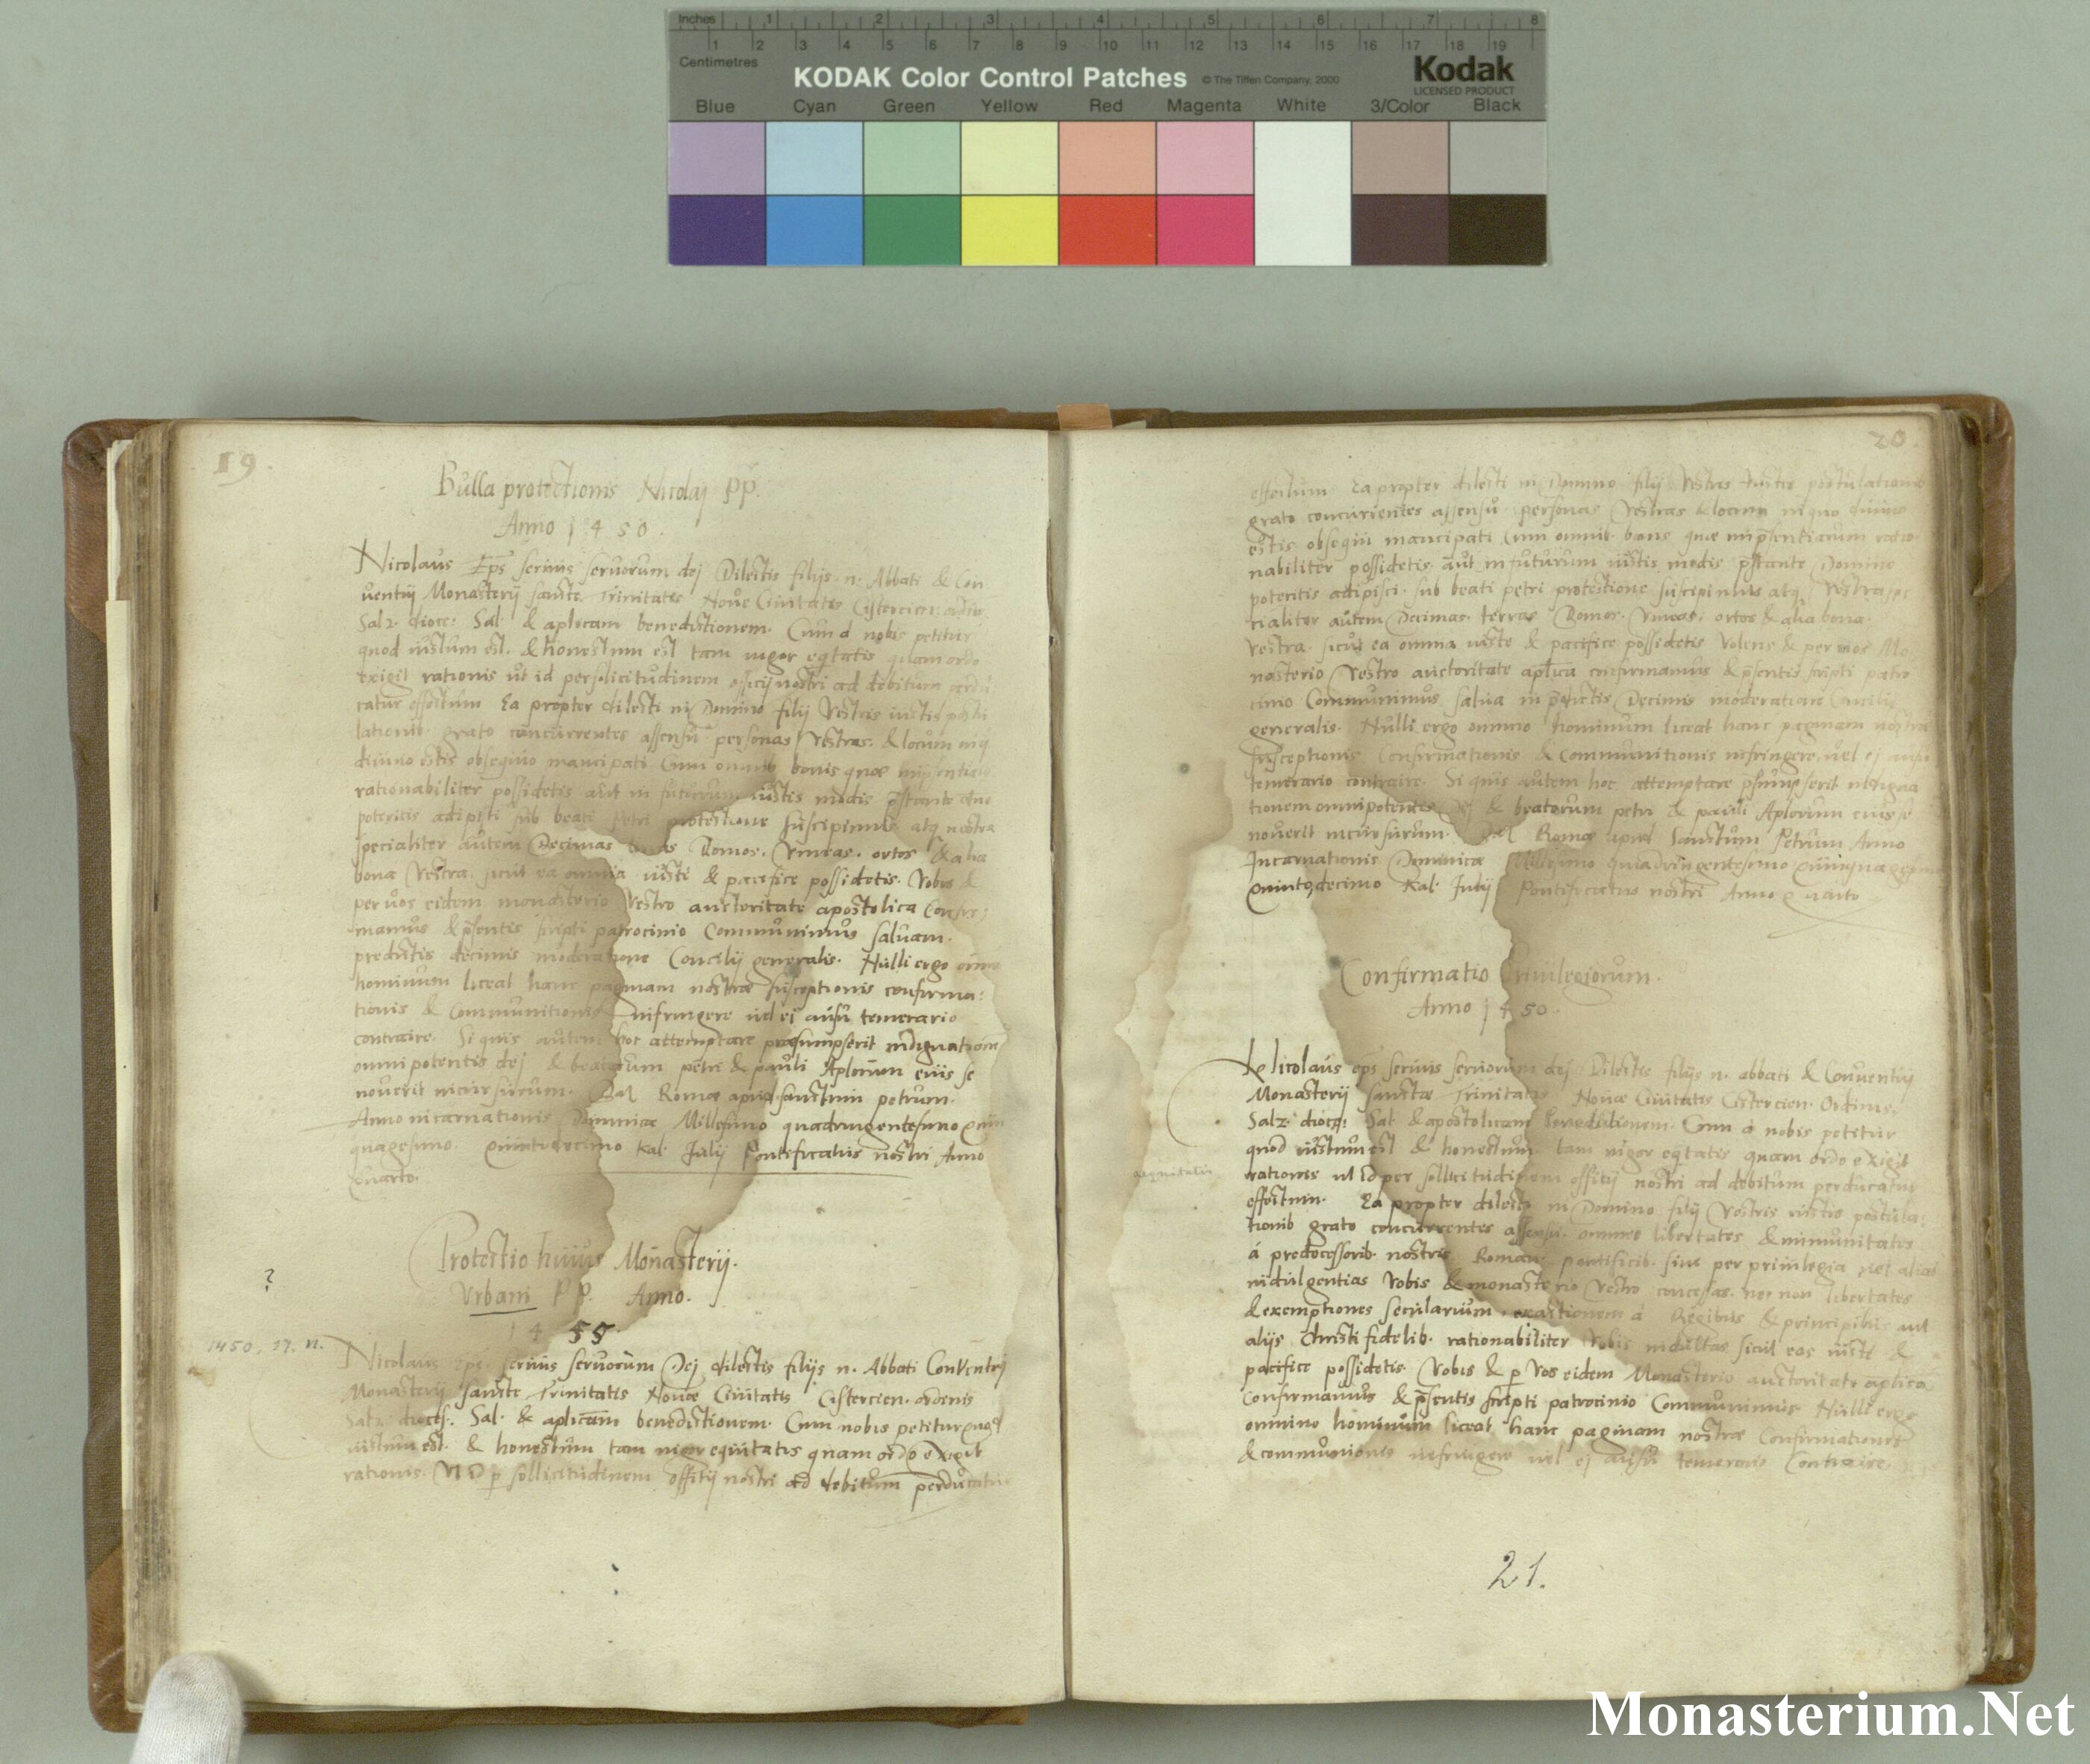 Inches 1 2 3 4 5 6 7 8
1 2 3 4 5 6 7 8 9 10 11 12 13 14 15 16 17 18 19
Centimetres
KODAK Color Control Patches © The Tiffen Company, 2000 Kodak
LICENSED PRODUCT
Blue Cyan Green Yellow Red Magenta White 3/Color Black
19.
Bulla protectionis Nicolaj PP.
Anno 1450.
Nicolaus Eps seruus seruorum dej Dilectis filijs. n. Abbati & Con
uentij Monasterij sancte Trinitatis Noue Ciuitatis Cistercien: ordis
Salz. dioce: Sal. & aplicam benedictionem. Cum á nobis petitur
quod iustum est. & honestum est tam uigor eqtatis quam ordo
exigit rationis ut id per solicitudinem officij nostri ad debitum perdu
catur effectum Ea propter dilecti in Domino filij Vestris iustis postu
lationib. grato concurrentes assensu personas Vestras. & locum in q
diuino estis obsequio mancipati cum omnib bonis quae inpsentiar
rationabiliter possidetis aut in futurum iustis modis pstante dno
poteritis adipisci sub beati Petri protectione suscipimus. atq nostra
specialiter autem Decimas terras Domos. Vineas. ortos & alia
bona Vestra. sicut ea omnia iuste & pacifice possidetis. Vobis &
per uos eidem monasterio Vestro auctoritate apostolica Confir:
mamus & psentis scripti patrocinio Communimus saluam.
predictis decimis moderatione Concilij generalis. Nulli ergo omni
hominum liceat hanc paginam nostrae susceptionis confirma:
tionis & Communitionis infringere uel ei ausu temerario
contraire. Si quis autem hoc attemptare praesumpserit indignationem
omnipotentis dej & beatorum petri & pauli Aplorum eius se
nouerit incursurum. Dat Romae apud sanctum petrum.
Anno incarnationis Dominicae Millesimo quadringentesimo quin
quagesimo. Quintodecimo Kal. Julij Pontificatus nostri Anno
Quarto.
Protectio huius Monasterij.
Vrbani PP. Anno.
?
1455.
1450. 17. VI.
Nicolaus Eps seruus seruorum Dej dilectis filijs n. Abbati Conuentuj
Monasterij sancte Trinitatis Nouae Ciuitatis Cistercien. ordinis
Salz. dioces: Sal. & aplicam benedictionem. Cum nobis petitur quod
iustum est. & honestum tam uigor equitatis quam ordo exigit
rationis. Vt id p sollicitudinem offitij nostri ad debitum perducatur
20.
effectum Ea propter dilecti in Domino filij Vestris iustis postulationib
grato concurrentes assensu. personas Vestras & locum in quo diuino
estis obsequii mancipati cum omnib. bonis quae inpsentiarum ratio:
nabiliter possidetis aut in futurum iustis modis pstante Domino
poteritis adipisci. sub beati petri protectione suscipimus atq Vestra spe
cialiter autem Decimas. terras Domos. Vineas. ortos & alia bona.
Vestra. sicut ea omnia iuste & pacifice possidetis Vobis & per uos Mo
nasterio Vestro auctoritate aplica confirmamus & psentis scripti patro
cinio Communimus salua in pdictis Decimis moderatione Concilij
generalis. Nulli ergo omnino hominum liceat hanc paginam nostrae
susceptionis Confirmationis & Communitionis infringere uel ej ausu
temerario contraire. Si quis autem hoc attemptare psumpserit indigna
tionem omnipotentis dej & beatorum petri & pauli Aplorum eius se
nouerit incursurum. Dat Romae apud Sanctum Petrum Anno
Incarnationis Dominicae Millesimo quadringentesimo Quinquagesimo
Quintodecimo Kal. Julij Pontificatus nostri Anno Quarto
Confirmatio Priuilegiorum.
Anno 1450.
Nicolaus eps seruus seruorum dej Dilectis filijs n. abbati & Conuentuj
Monasterij sanctae Trinitatis Nouae Ciuitatis Cistercien. Ordinis.
Salz. dioce: Sal & apostolicam benedictionem. Cum á nobis petitur
quod iustum est & honestum. tam uigor eqtatis quam ordo exigit
aequitatis
rationis ut id per sollicitudinem offitij nostri ad debitum perducatur
effectum. Ea propter dilecti in Domino filij Vestris iustis postula:
tionib grato concurrentes assensu. omnes libertates & immunitates
á predecessorib. nostris Roman. pontificib. siue per priuilegia uel alias
indulgentias Vobis & monasterio Vestro concessas. nec non libertates
& exemptiones secularium exactionem á Regibus & principibus uel
alijs Christi fidelib. rationabiliter Vobis indultas sicut eas iuste &
pacifice possidetis. Vobis & p Vos eidem Monasterio auctoritate aplica
Confirmamus & psentis scripti patrocinio Communimus. Nulli ergo
omnino hominum liceat hanc paginam nostrae Confirmationis
& communionis infringere uel ej ausu temerario Contraire.
21.
Monasterium.Net